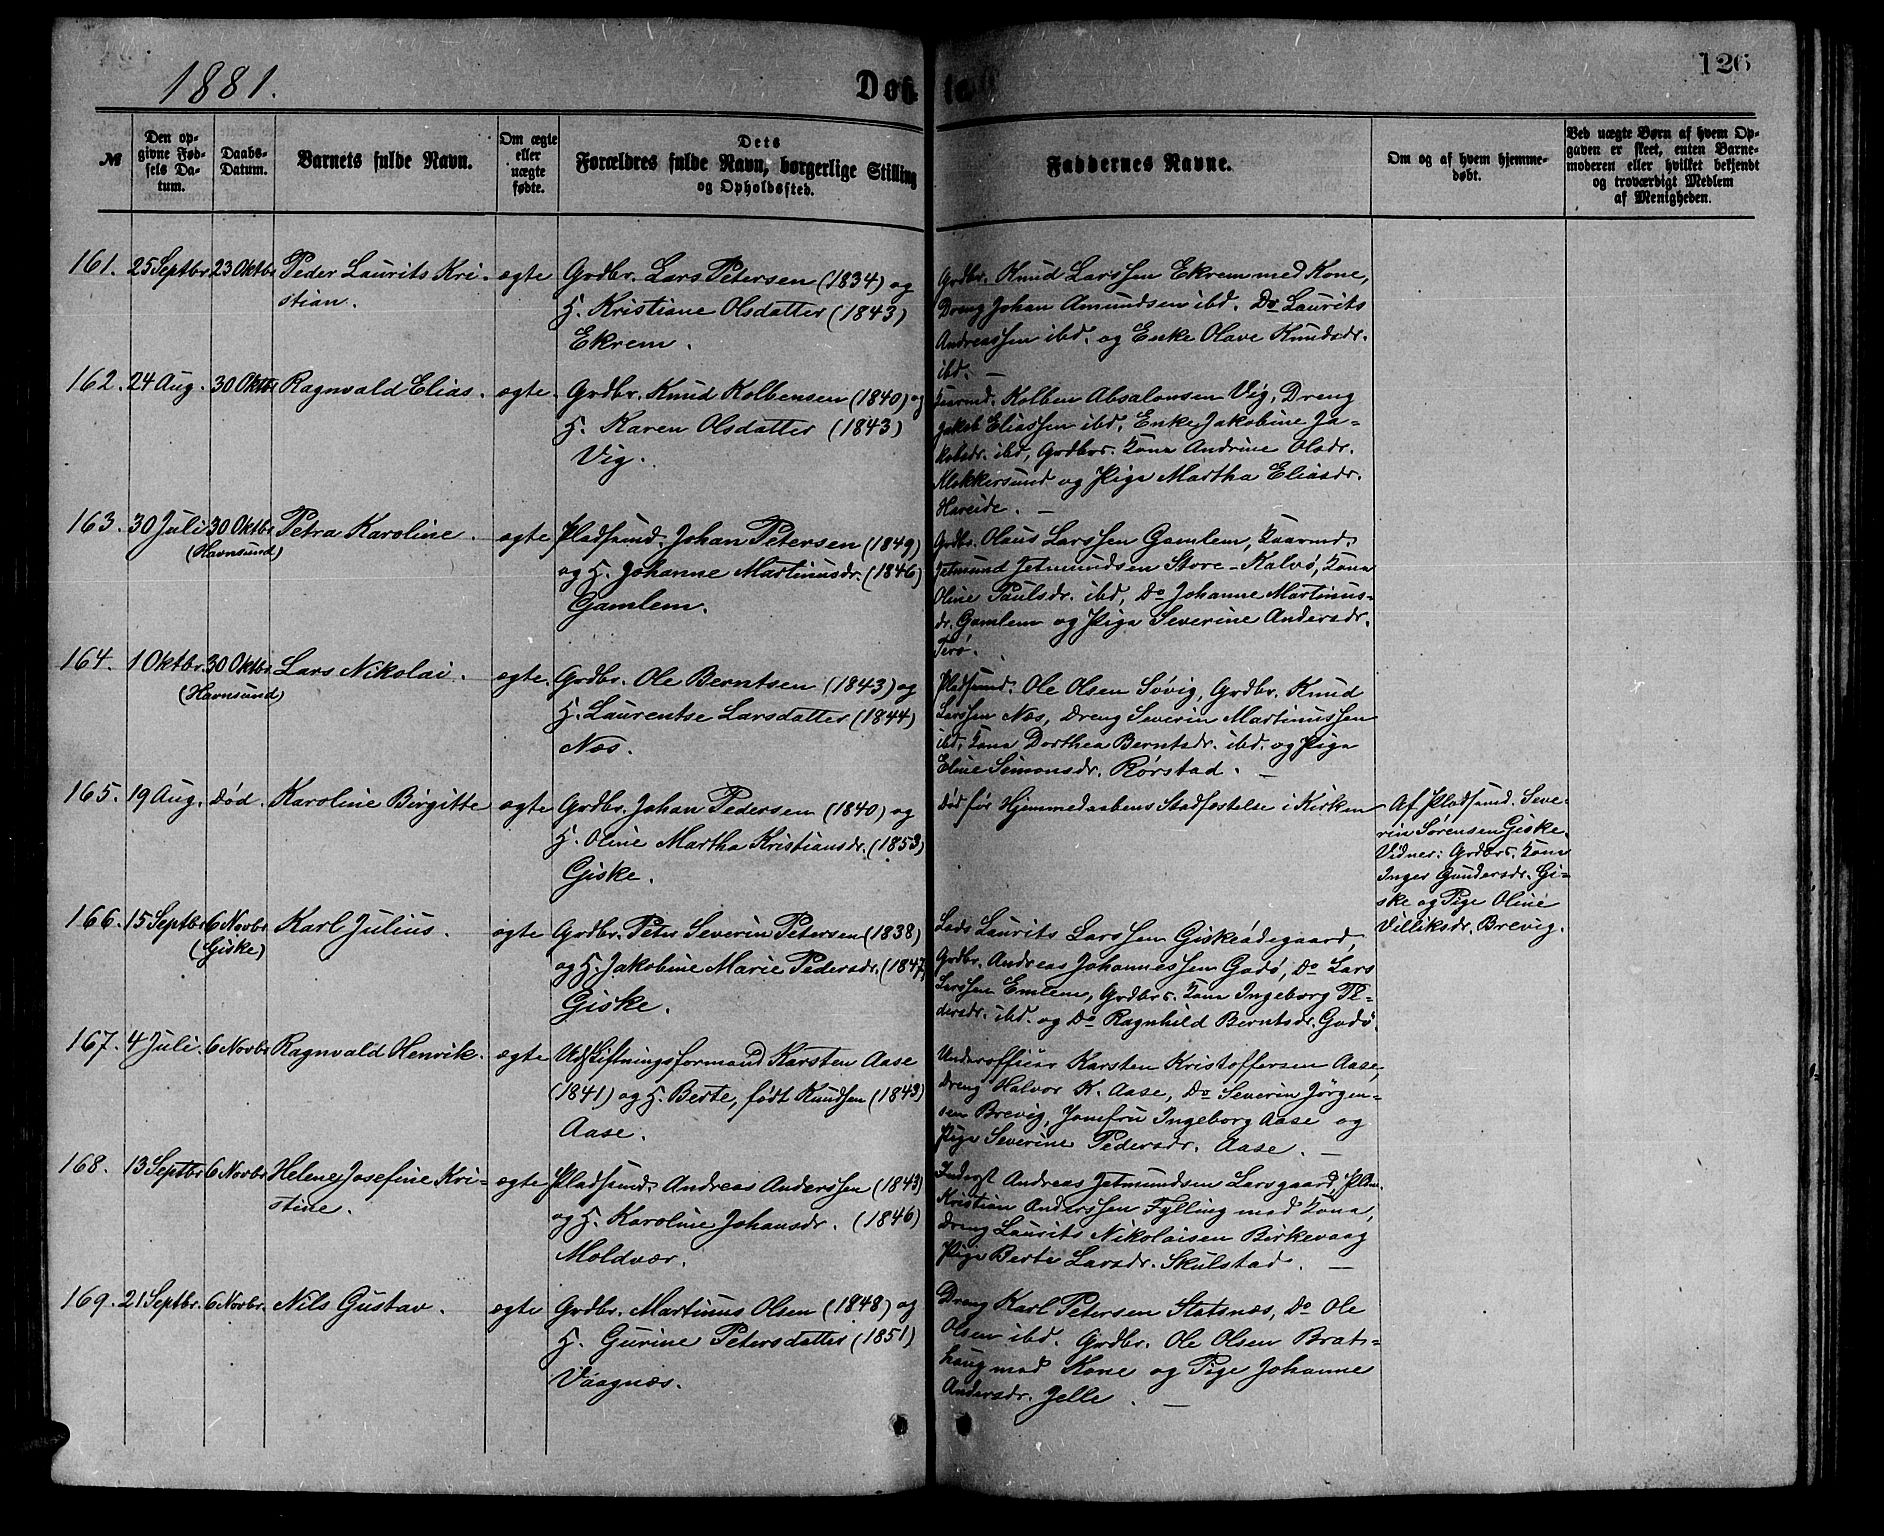 1881.
126
№
Den op-
givne Fød-
sels Da-
tum.
Daabs-
Datum.
Barnets fulde Navn.
Om ægte
eller
uægte
fødte.
Dets
Forældres fulde Navn, borgerlige Stilling
og Opholdssted.
Faddernes Navne.
Om og af hvem hjemme-
døbt.
Ved uægte Børn af hvem Op-
gaven er skeet, enten Barne-
moderen eller hvilket bekjendt
og troværdigt Medlem
af Menigheden.
161. 25 Septbr 23 Oktbr Peder Laurits Kri-
stian.
ægte
Grdbr. Lars Petersen (1834) og
H. Kristiane Olsdatter (1843)
Ekrem.
Grdbr. Knud Larssen Ekrem med Kone,
Dreng Johan Amundsen ibd. Do Laurits
Andreassen ibd. og Enke Olave Knudsdr.
ibd. —
162. 24 Aug. 30 Oktbr Ragnvald Elias.
ægte.
Grdbr. Knud Kolbensen (1840) og
H. Karen Olsdatter (1843)
Vig.
Kaarmd. Kolben Absalonsen Vig, Dreng
Jakob Eliassen ibd, Enke Jakobine Ja-
kobsdr. ibd, Grdbrs. Kone Andrine Olsdr.
Klokkersund og Pige Martha Eliasdr.
Hareide. —
163. 30 Juli 30 Oktbr Petra Karoline.
(Havnsund)
ægte
Pladsmd. Johan Petersen (1849)
og H. Johanne Martinusdr. (1846)
Gamlem.
Grdbr. Olaus Larssen Gamlem, Kaarmd.
Jetmund Jetmundsen Store-Kalvø, Kone
Oline Paulsdr. ibd, Do Johanne Martinus-
dr. Gamlem og Pige Severine Andersdr.
Terø.
164. 1 Oktbr. 30 Oktbr Lars Nikolai.
(Havnsund)
ægte.
Grdbr. Ole Berntsen (1843) og
H. Laurentse Larsdatter (1844)
Næs.
Pladsmd. Ole Olsen Søvig, Grdbr. Knud
Larssen Næs, Dreng Severin Martinussen
ibd. Kone Dorthea Berntsdr. ibd. og Pige
Eline Simonsdr. Rørstad. —
165. 19 Aug. Død. Karoline Birgitte
ægte
Grdbr. Johan Pedersen (1840) og
H. Oline Martha Kristiansdr. (1853)
Giske.
Død før Hjemmedaabens Stadfæstelse i Kirken
Af Pladsmd. Seve-
rin Sørensen Giske.
Vidner: Grdbrs. Kone
Inger Gundersdr. Gi-
ske og Pige Oline
Villiksdr. Brevig.
166. 15 Septbr 6 Novbr Karl Julius.
(Giske)
ægte
Grdbr. Peter Severin Petersen (1838)
og H. Jakobine Marie Pedersdr. (1847)
Giske.
Lods Laurits Larssen Giskeødegaard,
Grdbr. Andreas Johannessen Godø, Do Lars
Larssen Emlem, Grdbrs. Kone Ingeborg Pe-
dersdr. ibd. og Do Ragnhild Berntsdr. Godø.
167. 4 Juli. 6 Novbr Ragnvald Henrik.
ægte
Udskiftningsformand Karsten Aase
(1841) og H. Berte, født Knudsen (1843)
Aase.
Underofficer Karsten Kristoffersen Aase,
Dreng Halvor K. Aase, Do Severin Jørgen-
sen Brevig, Jomfru Ingeborg Aase og
Pige Severine Pedersdr. Aase. —
168. 13 Septbr 6 Novbr Helene Josefine Kri-
stine.
ægte
Pladsmd. Andreas Anderssen (1843)
og H. Karoline Johansdr. (1846)
Moldvær.
Inderst Andreas Jetmundsen Larsgaard, Plm.
Kristian Anderssen Fylling med Kone,
Dreng Laurits Nikolaisen Birkevaag
Pige Berte Larsdr. Skulstad. —
169. 21 Septbr. 6 Novbr. Nils Gustav.
ægte
Grdbr. Martinus Olsen (1848) og
H. Gurine Petersdatter (1851)
Vaagnæs.
Dreng Karl Petersen Statsnæs, Do Ole
Olsen ibd. Grdbr. Ole Olsen Brats-
haug med Kone og Pige Johanne
Andersdr. Jelle. —